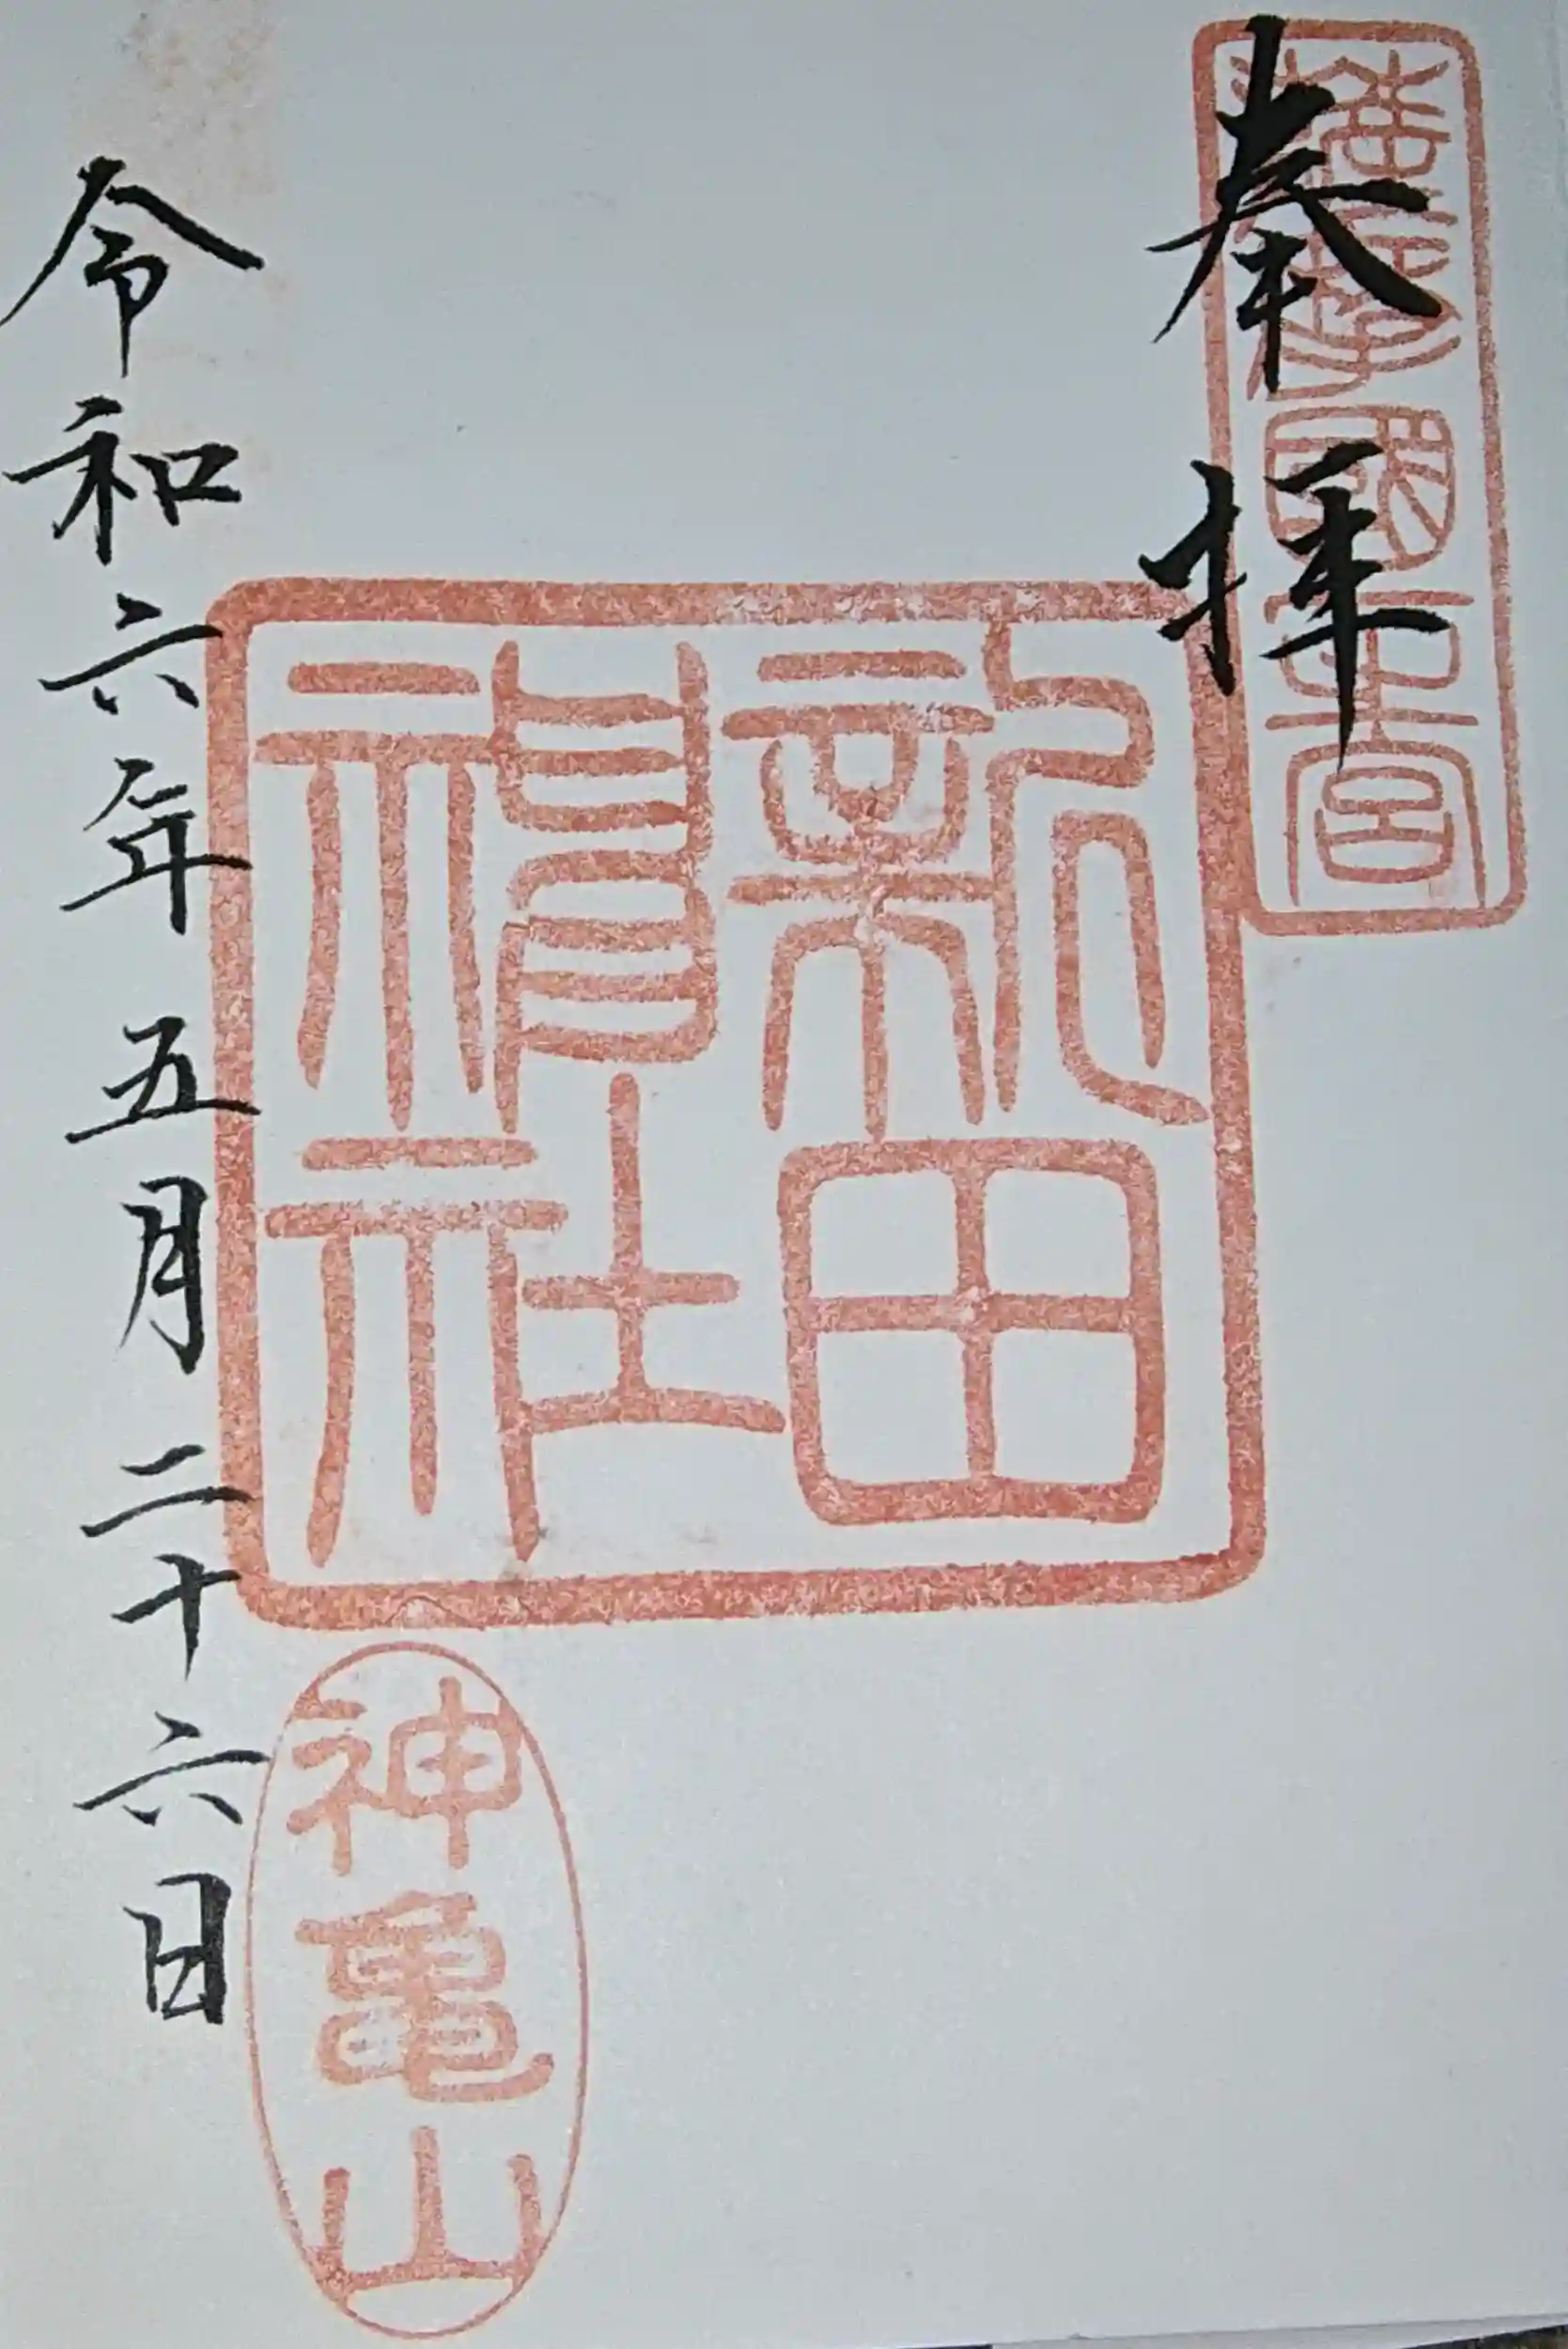 奉拝
薩摩國一之宮
新田
神社
神亀山
令和六年五月二十六日